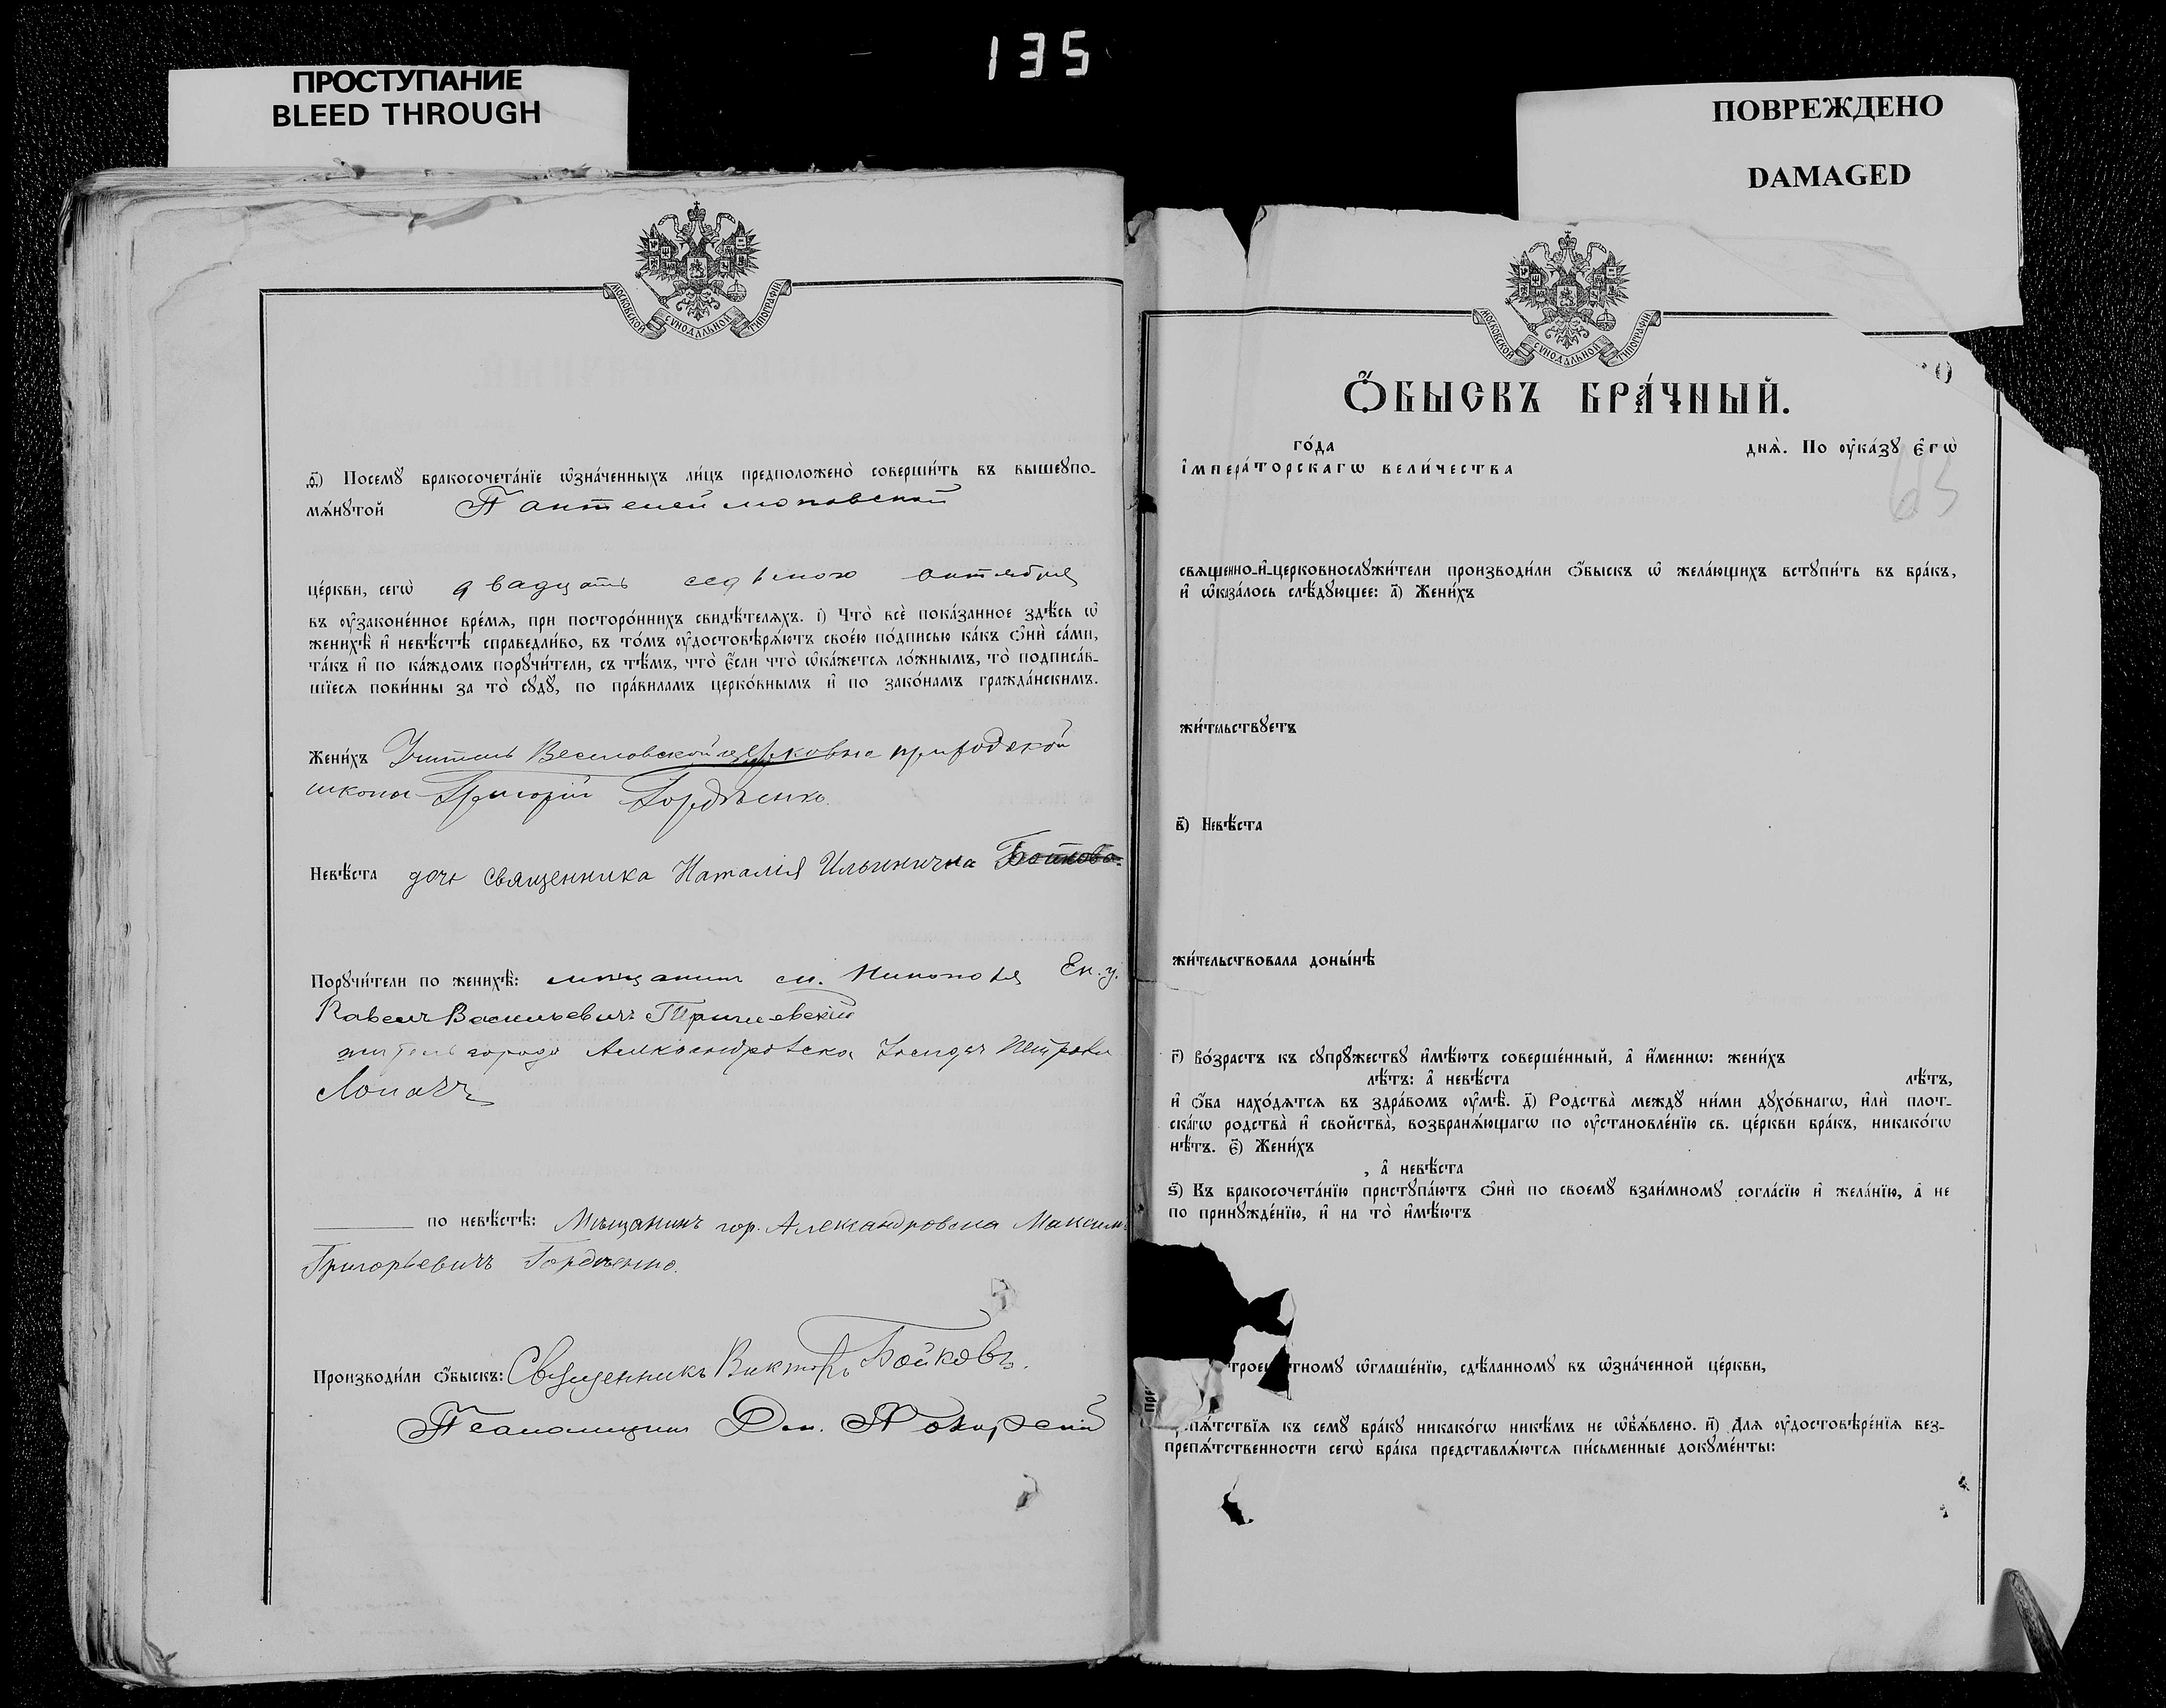 135
ПРОСТУПАНИЕ
BLEED THROUGH
ПОВРЕЖДЕНО
DAMAGED
МОСКОВСКОЙ СѴНОДАЛЬНОЙ ТИПОГРАФІИ
ѳ҃) Посемꙋ̀ бракосочета́нїе ѡ҆зна́ченныхъ ли́цъ предположено̀ соверши́ть въ вышеꙋпо-
мѧ́нꙋтой Пантелеймоновской
це́ркви, сегѡ̀ двадцать седьмого октября
въ ᲂу҆зако́ненное вре́мѧ, при посторо́ннихъ свидѣ́телѧхъ. і҃) Что̀ всѐ пока́занное здѣ́сь ѡ҆
женихѣ̀ и҆ невѣ́стѣ справедли́во, въ то́мъ ᲂу҆достовѣрѧ́ютъ свое́ю по́дписью ка́къ ѻ҆нѝ са́ми,
та́къ и҆ по ка́ждомъ порꙋчи́тели, съ тѣ́мъ, что̀ є҆́сли что̀ ѡ҆ка́жетсѧ ло́жнымъ, то̀ подписа́в-
шїесѧ пови́нны за то̀ сꙋдꙋ̀, по пра́виламъ церко́внымъ и҆ по зако́намъ гражда́нскимъ.
Жени́хъ Учитель Веселовской церковно приходской
школы Григорій Гордѣенко.
Невѣ́ста дочь священника Наталія Ильинична Бойкова
Порꙋчи́тели по женихѣ̀: мѣщанин м. Никополя Ек. у.
Павелъ Васильевичъ
житель города Александровска
Лопатъ
по невѣ́стѣ: Мѣщанинъ гор. Александровска Максимъ
Григорьевичъ Гордѣенко.
Производи́ли ѻ҆́быскъ: Священникъ Викторъ Бойковъ.
Псаломщик
МОСКОВСКОЙ СѴНОДАЛЬНОЙ ТИПОГРАФІИ
Ѻ҆́БЫСКЪ БРА́ЧНЫЙ.
го́да днѧ̀. По ᲂу҆ка́зꙋ Є҆гѡ̀
і҆мпера́торскагѡ вели́чества
63
свѧще́нно-и҆-церковнослꙋжи́тели производи́ли ѻ҆́быскъ ѡ҆ жела́ющихъ встꙋпи́ть въ бра́къ,
и҆ ѡ҆каза́лось слѣ́дꙋющее: а҃) Жени́хъ
жи́тельствꙋетъ
в҃) Невѣ́ста
жи́тельствовала доны́нѣ
г҃) Во́зрастъ къ сꙋпрꙋ́жествꙋ и҆мѣ́ютъ соверше́нный, а҆ и҆́меннѡ: жени́хъ
лѣ́тъ: а҆ невѣ́ста лѣ́тъ,
и҆ ѻ҆́ба нахо́дѧтсѧ въ здра́вомъ ᲂу҆мѣ̀. д҃) Родства̀ междꙋ̀ ни́ми дꙋхо́внагѡ, и҆лѝ плот-
ска́гѡ родства̀ и҆ сво́йства̀, возбранѧ́ющагѡ по ᲂу҆становле́нїю св. це́ркви бра́къ, никако́гѡ
нѣ́тъ. є҃) Жени́хъ
, а҆ невѣ́ста
ѕ҃) Къ бракосочета́нїю пристꙋпа́ютъ ѻ҆нѝ по своемꙋ̀ взаи́мномꙋ согла́сїю и҆ жела́нїю, а҆ не
по принꙋжде́нїю, и҆ на то̀ и҆мѣ́ютъ
троекратномꙋ ѡ҆глаше́нїю, сдѣ́ланномꙋ въ ѡ҆зна́ченной це́ркви,
пѧ́тствїѧ къ семꙋ̀ бра́кꙋ никако́гѡ никѣ́мъ не ѡ҆б̾ѧ́влено. и҃) Для ᲂу҆достовѣре́нїѧ без-
препѧ́тственности сегѡ̀ бра́ка представлѧ́ютсѧ пи́сьменные докꙋме́нты: